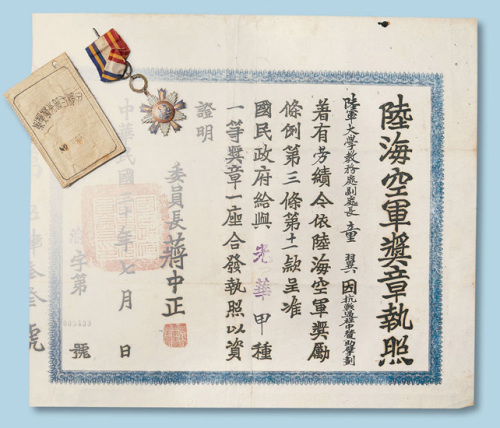 陸海空軍獎章執照
陸軍大學教務處副處長童翼因抗戰過程中襄助擘劃
著有勞績令依陸海空軍獎勵
條例第三條第十一款呈准
國民政府給與光華甲種
一等獎章一座合發執照以資
證明
委員長蔣中正
中華民國三十年七月 日
字第 號